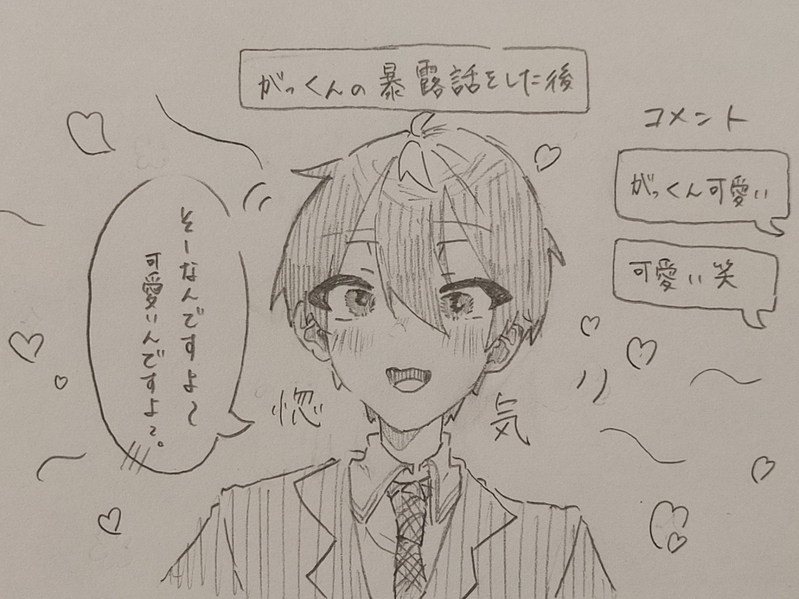 がっくんの暴露話をした後
コメント
がっくん可愛い
可愛い笑
そーなんですよ〜
可愛いんですよ〜。
惚気